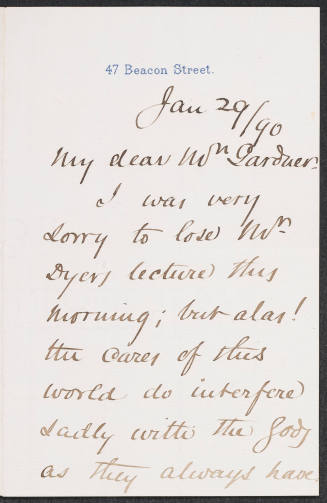 47 Beacon Street.
Jan 29/90
My dear Mrs Gardner.
I was very
sorry to lose Mr
Dyers lecture this
morning; but alas!
the cares of this
world do interfere
sadly with the Gods
as they always have.